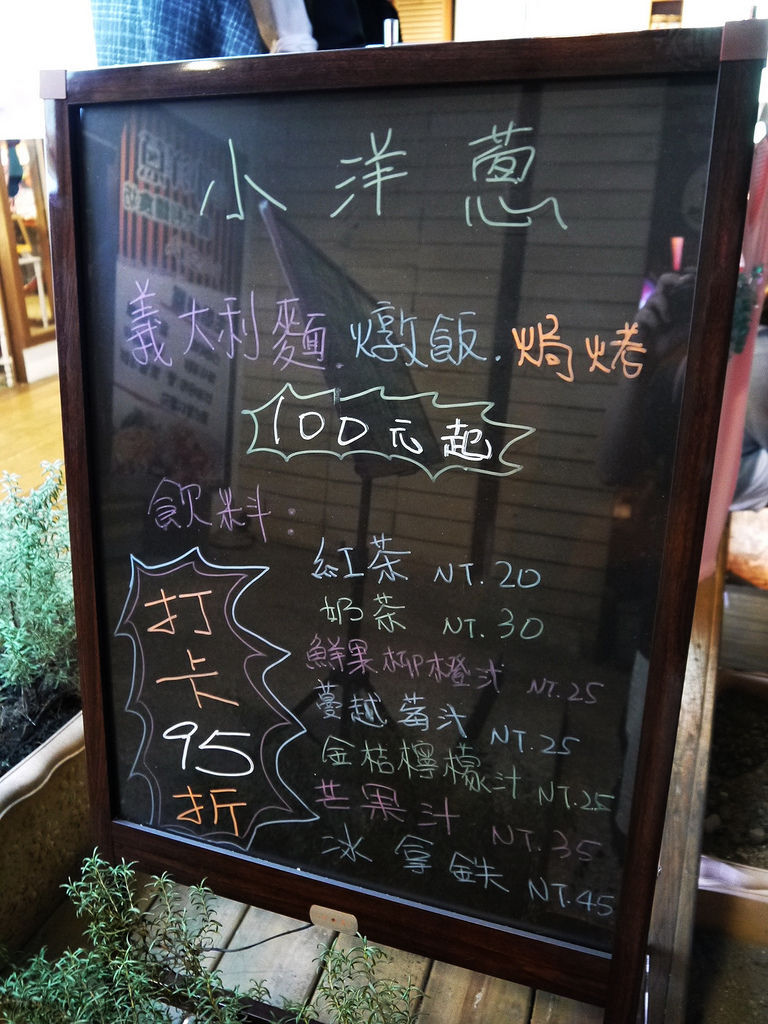 小洋蔥
義大利麵.燉飯.焗烤
100元起
飲料:
紅茶 NT.20
奶茶 NT.30
鮮果柳橙汁 NT.25
蔓越莓汁 NT.25
金桔檸檬汁 NT.25
芒果汁 NT.35
冰拿鉄 NT.45
打
卡
95
折